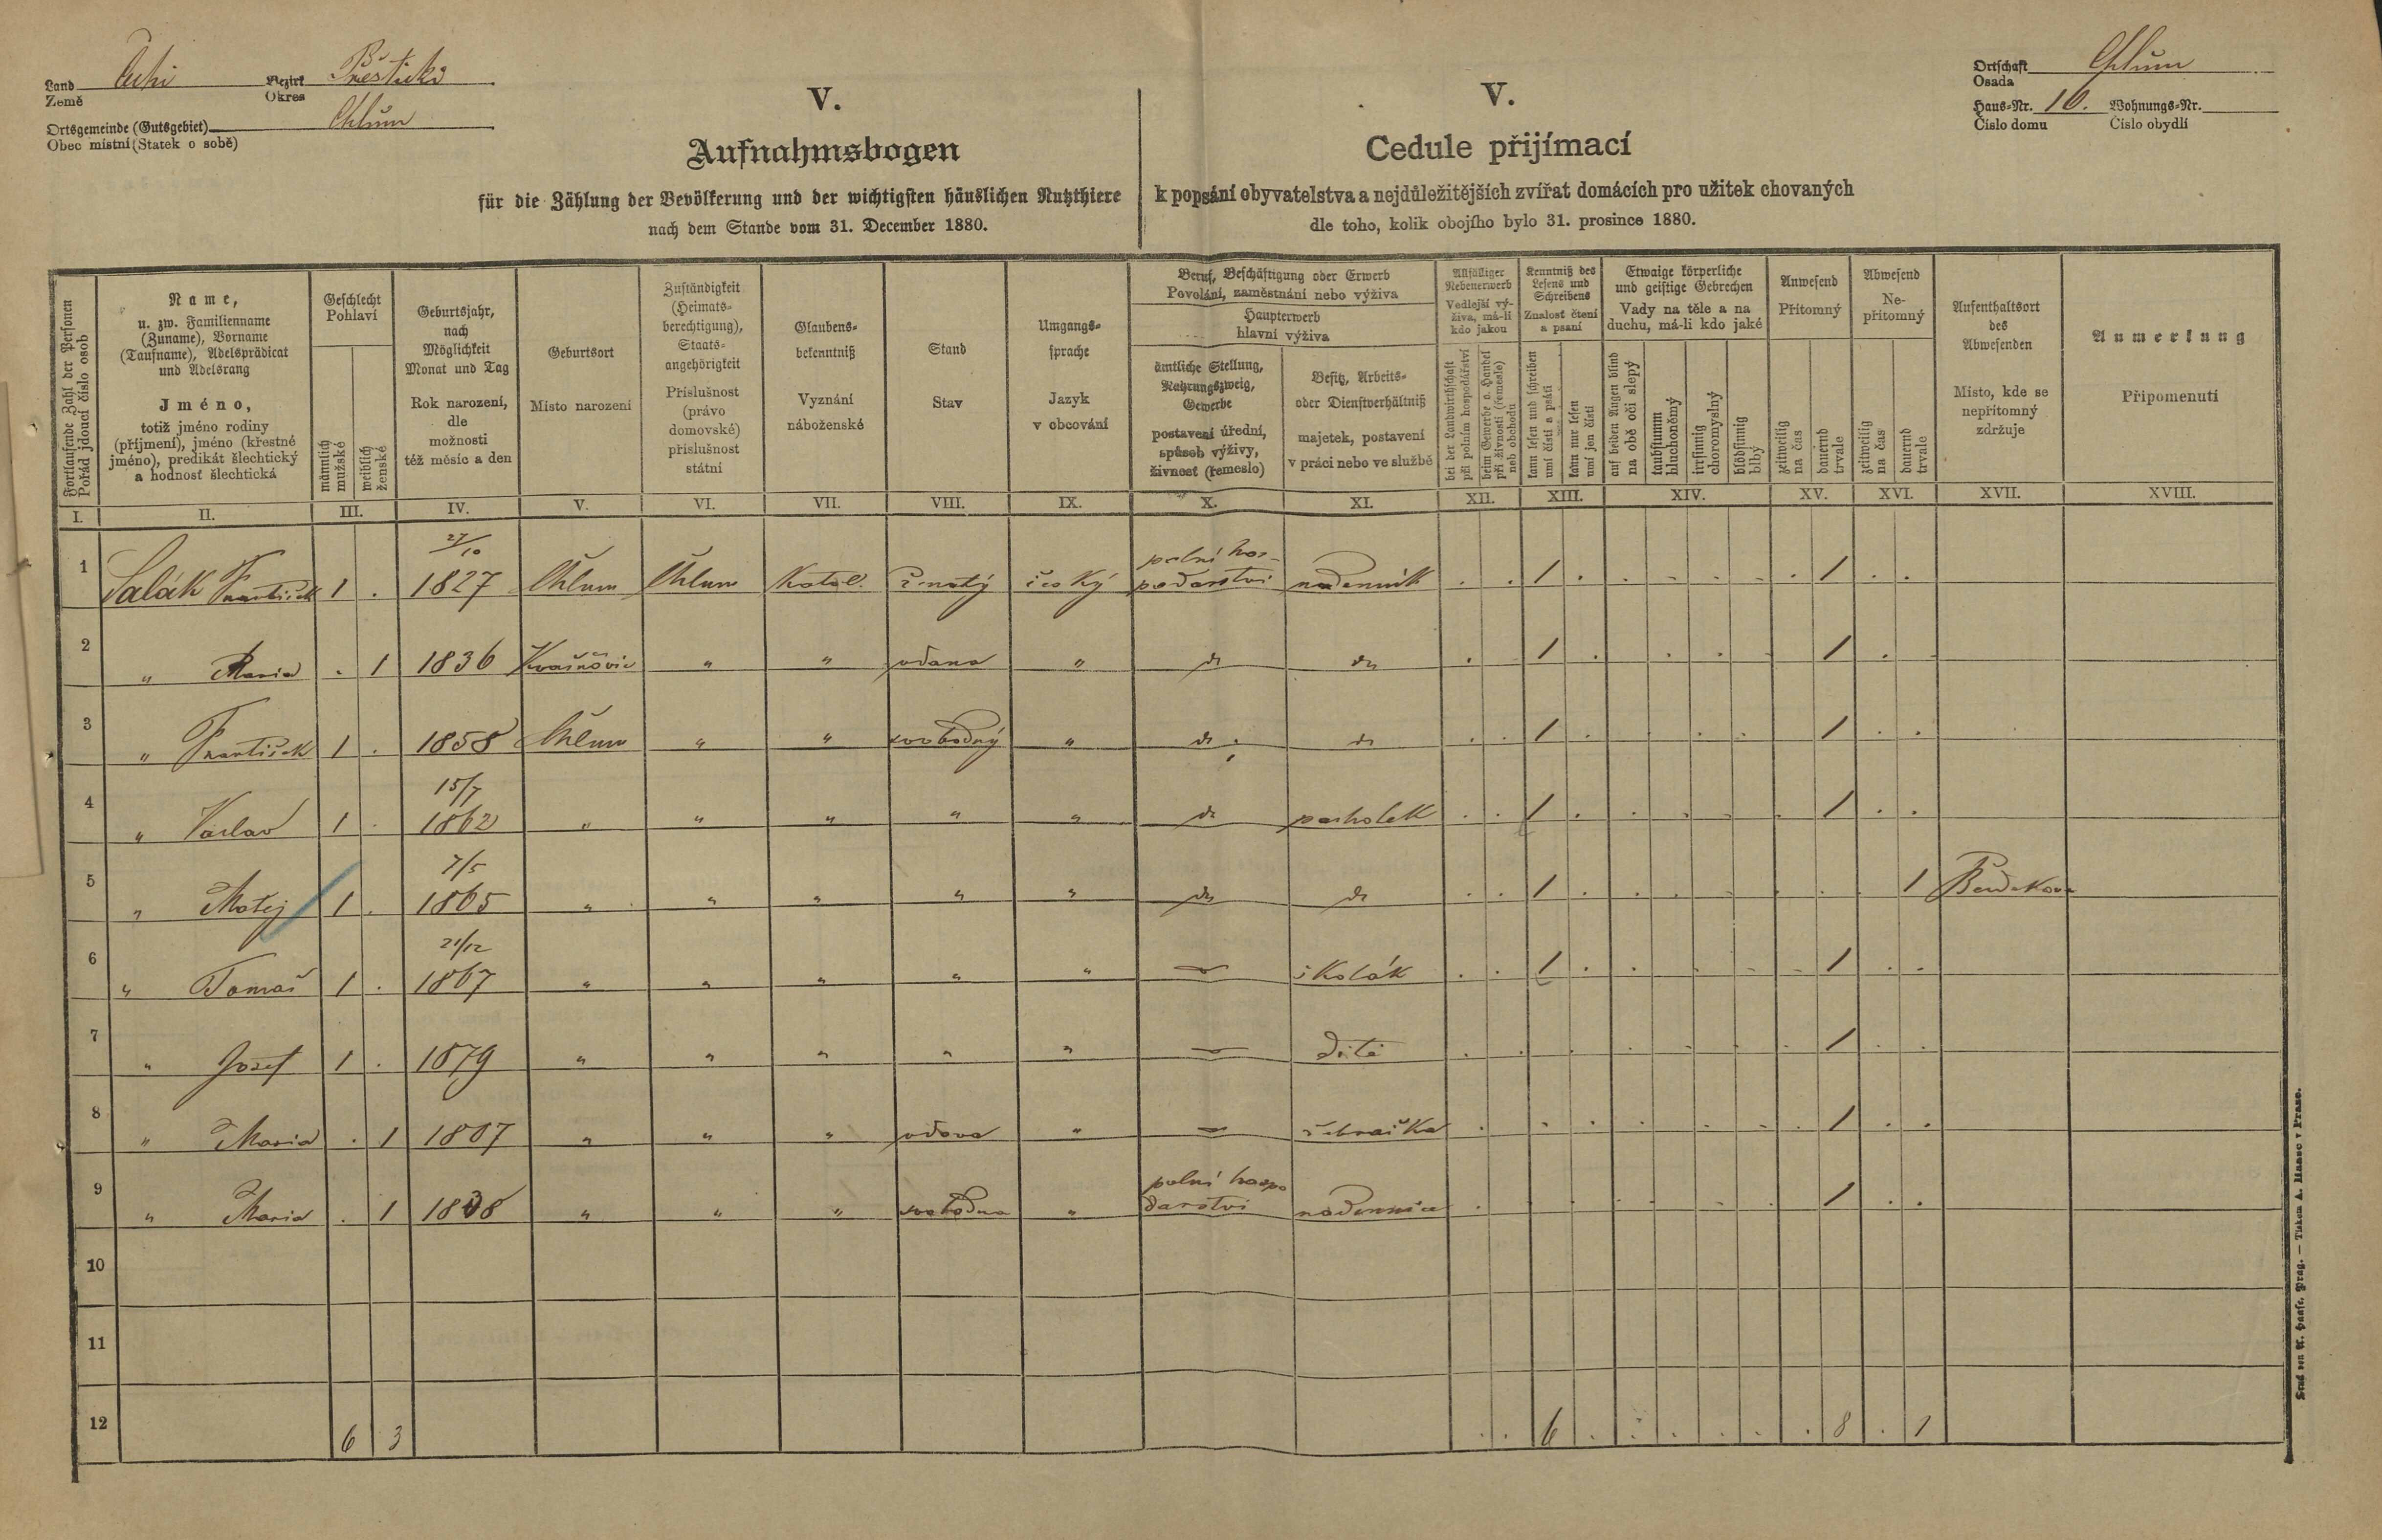 Land Čechi Bezirk Přestická
Země Okres
Ortsgemeinde (Gutsgebiet) Chlum
Obec místní (Statek o sobě)
V.
Aufnahmsbogen
für die Zählung der Bevölkerung und der wichtigsten häuslichen Nutzthiere
nach dem Stande vom 31. December 1880.
V.
Cedule přijímací
k popsání obyvatelstva a nejdůležitějších zvířat domácích pro užitek chovaných
dle toho, kolik obojího bylo 31. prosince 1880.
Ortschaft Chlum
Osada
Haus-Nr. 16. Wohnungs-Nr.
Číslo domu Číslo obydlí
Fortlaufende Zahl der Personen
Pořád jdoucí číslo osob
Name,
u. zw. Familienname
(Zuname), Vorname
(Taufname), Adelsprädicat
und Adelsrang
Jméno,
totiž jméno rodiny
(příjmení), jméno (křestné
jméno), predikát šlechtický
a hodnosť šlechtická
Geschlecht
Pohlaví
männlich
mužské
weiblich
ženské
Geburtsjahr,
nach
Möglichkeit
Monat und Tag
Rok narození,
dle
možnosti
též měsíc a den
Geburtsort
Místo narození
Zuständigkeit
(Heimats-
berechtigung),
Staats-
angehörigkeit
Příslušnost
(právo
domovské)
příslušnost
státní
Glaubens-
bekenntniß
Vyznání
náboženské
Stand
Stav
Umgangs-
sprache
Jazyk
v obcování
Beruf, Beschäftigung oder Erwerb
Povolání, zaměstnání nebo výživa
Haupterwerb
hlavní výživa
ämtliche Stellung,
Nahrungszweig,
Gewerbe
postavení úřední,
spůsob výživy,
živnosť (řemeslo)
Besitz, Arbeits-
oder Dienstverhältniß
majetek, postavení
v práci nebo ve službě
Allfälliger
Nebenerwerb
Vedlejší vý-
živa, má-li
kdo jakou
bei der Landwirthschaft
při polním hospodářství
beim Gewerbe o. Handel
při živnosti (řemesle)
neb obchodu
Kenntniß des
Lesens und
Schreibens
Znalosť čtení
a psaní
kann lesen und schreiben
umí čísti a psáti
kann nur lesen
umí jen čísti
Etwaige körperliche
und geistige Gebrechen
Vady na těle a na
duchu, má-li kdo jaké
auf beiden Augen blind
na obě oči slepý
taubstumm
hluchoněmý
irrsinnig
choromyslný
blödsinnig
blbý
Anwesend
Přítomný
zeitweilig
na čas
dauernd
trvale
Abwesend
Ne-
přítomný
zeitweilig
na čas
dauernd
trvale
Aufenthaltsort
des
Abwesenden
Místo, kde se
nepřítomný
zdržuje
Anmerkung
Připomenutí
I. II. III. IV. V. VI. VII. VIII. IX. X. XI. XII. XIII. XIV. XV. XVI. XVII. XVIII.
27/10 polní hos-
1 Salák František 1 . 1827 Chlum Chlum Katol. ženatý český podarstvi nadenník . . 1 . . . . . . 1 . .
2 " Maria . 1 1836 Kvašňovic " " vdana " dt dt . 1 . . . . 1 . .
3 " František 1 . 1858 Chlum " " svobodný " dt dt . . 1 . . . 1 . .
15/7
4 " Václav 1 . 1862 " " " " " dt pacholek . . 1 . . . . . . 1 . .
7/5
5 " Matěj 1 . 1865 " " " " " dt dt . . 1 . . . . . . . . 1
21/12
6 " Tomaš 1 . 1867 " " " " " — školák . . 1 . . . . . . 1 . .
7 " Josef 1 . 1879 " " " " " — dítě . . . . . . . . 1 . .
8 " Maria . 1 1807 " " " vdova " — žebračka . . . . . . . 1 . .
polní hospo
9 " Maria . 1 1838 " " " svobodna " darstvi nadennice . . . . . . . 1 . .
10
11
12 6 3 . . 6 . . . . . . 8 . 1
Druck von A. Haase, Prag. — Tiskem A. Haase v Praze.